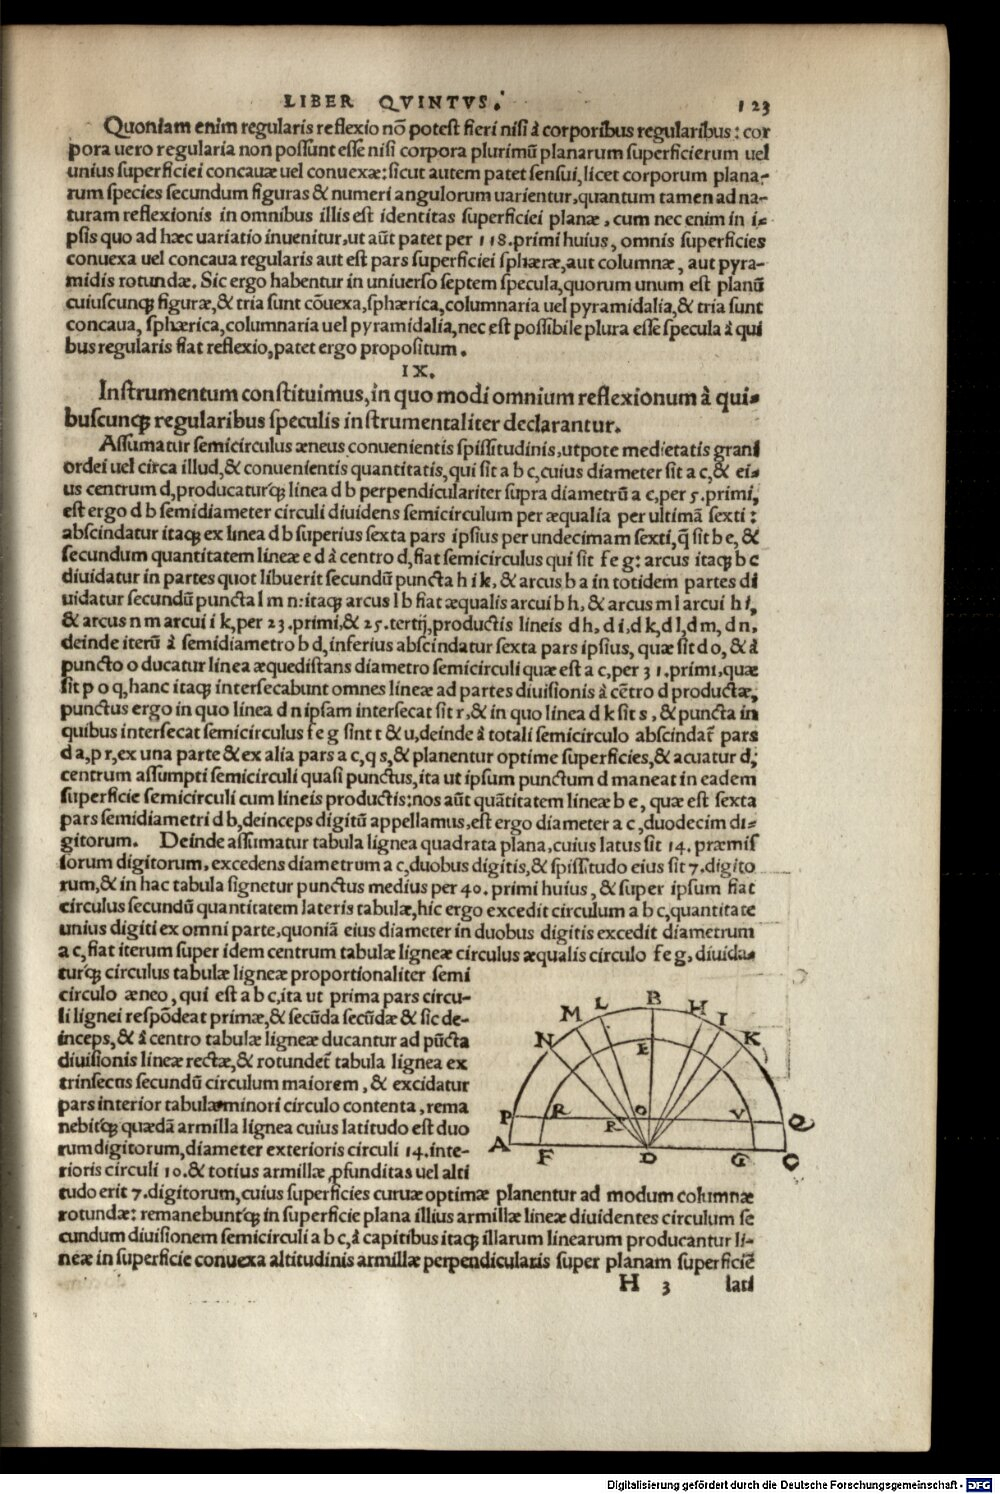 LIBER QVINTVS. 123
Quoniam enim regularis reflexio nõ potest fieri nisi à corporibus regularibus: cor
pora uero regularia non possunt esse nisi corpora plurimũ planarum superficierum uel
unius superficiei concauæ uel conuexæ: sicut autem patet sensui, licet corporum plana-
rum species secundum figuras & numeri angulorum uarientur, quantum tamen ad na-
turam reflexionis in omnibus illis est identitas superficiei planæ, cum nec enim in i-
psis quo ad hæc uariatio inuenitur, ut aũt patet per 118. primi huius, omnis superficies
conuexa uel concaua regularis aut est pars superficiei sphæræ, aut columnæ, aut pyra-
midis rotundæ. Sic ergo habentur in uniuerso septem specula, quorum unum est planũ
cuiuscunqꝫ figuræ, & tria sunt cõuexa, sphærica, columnaria uel pyramidalia, & tria sunt
concaua, sphærica, columnaria uel pyramidalia, nec est possibile plura esse specula à qui
bus regularis fiat reflexio, patet ergo propositum.
IX.
Instrumentum constituimus, in quo modi omnium reflexionum à qui-
buscunqꝫ regularibus speculis instrumentaliter declarantur.
Assumatur semicirculus æneus conuenientis spissitudinis, utpote medietatis grani
ordei uel circa illud, & conuenientis quantitatis, qui sit a b c, cuius diameter sit a c, & ei-
us centrum d, producaturqꝫ linea d b perpendiculariter supra diametrũ a c, per 5. primi,
est ergo d b semidiameter circuli diuidens semicirculum per æqualia per ultimã sexti:
abscindatur itaqꝫ ex linea d b superius sexta pars ipsius per undecimam sexti, q̃ sit b e, &
secundum quantitatem lineæ e d à centro d, fiat semicirculus qui sit f e g: arcus itaqꝫ b c
diuidatur in partes quot libuerit secundũ puncta h i k, & arcus b a in totidem partes di
uidatur secundũ puncta l m n: itaqꝫ arcus l b fiat æqualis arcui b h, & arcus m l arcui h i,
& arcus n m arcui i k, per 23. primi, & 25. tertij, productis lineis d h, d i, d k, d l, d m, d n,
deinde iterũ à semidiametro b d, inferius abscindatur sexta pars ipsius, quæ sit d o, & à
puncto o ducatur linea æquedistans diametro semicirculi quæ est a c, per 31. primi, quæ
sit p o q, hanc itaqꝫ intersecabunt omnes lineæ ad partes diuisionis à cẽtro d productæ,
punctus ergo in quo linea d n ipsam intersecat sit r, & in quo linea d k sit s, & puncta in
quibus intersecat semicirculus f e g sint t & u, deinde à totali semicirculo abscindat̃ pars
d a, p r, ex una parte & ex alia pars a c, q s, & planentur optime superficies, & acuatur d,
centrum assumpti semicirculi quasi punctus, ita ut ipsum punctum d maneat in eadem
superficie semicirculi cum lineis productis: nos aũt quãtitatem lineæ b e, quæ est sexta
pars semidiametri d b, deinceps digitũ appellamus, est ergo diameter a c, duodecim di-
gitorum. Deinde assumatur tabula lignea quadrata plana, cuius latus sit 14. præmis
sorum digitorum, excedens diametrum a c, duobus digitis, & spissitudo eius sit 7. digito
rum, & in hac tabula signetur punctus medius per 40. primi huius, & super ipsum fiat
circulus secundũ quantitatem lateris tabulæ, hic ergo excedit circulum a b c, quantitate
unius digiti ex omni parte, quoniã eius diameter in duobus digitis excedit diametrum
a c, fiat iterum super idem centrum tabulæ ligneæ circulus æqualis circulo f e g, diuida-
turqꝫ circulus tabulæ ligneæ proportionaliter semi
circulo æneo, qui est a b c, ita ut prima pars circu-
li lignei respõdeat primæ, & secũda secũdæ & sic de-
inceps, & à centro tabulæ ligneæ ducantur ad pũcta
diuisionis lineæ rectæ, & rotundet̃ tabula lignea ex
trinsecus secundũ circulum maiorem, & excidatur
pars interior tabulæ minori circulo contenta, rema
nebitqꝫ quædã armilla lignea cuius latitudo est duo
rum digitorum, diameter exterioris circuli 14. inte-
rioris circuli 10. & totius armillæ ꝓfunditas uel alti
tudo erit 7. digitorum, cuius superficies curuæ optimæ planentur ad modum columnæ
rotundæ: remanebuntqꝫ in superficie plana illius armillæ lineæ diuidentes circulum se
cundum diuisionem semicirculi a b c, à capitibus itaqꝫ illarum linearum producantur li-
neæ in superficie conuexa altitudinis armillæ perpendicularis super planam superficiẽ
H 3 lati
N M L B H I K
E
P R O V Q
R
A F D G C
Digitalisierung gefördert durch die Deutsche Forschungsgemeinschaft - DFG